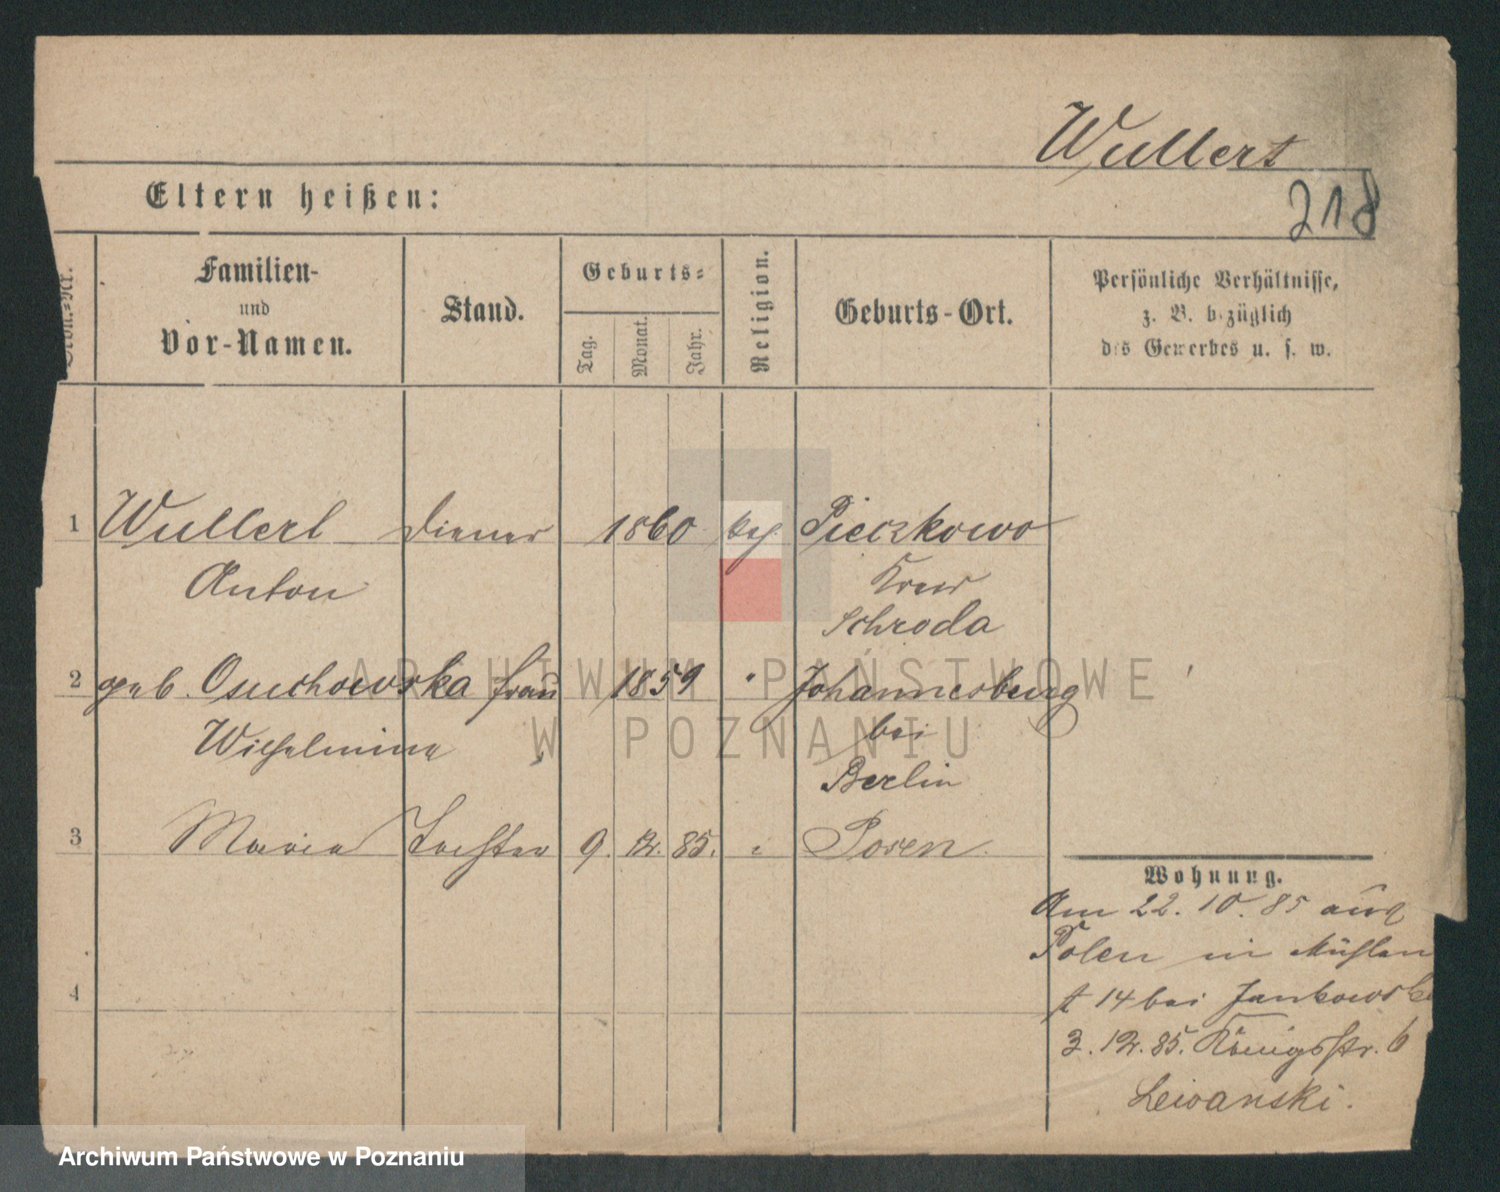 Wullert
218
Eltern heißen:
Familien-
und
Vor-Namen.
Stand.
Geburts-
Tag.
Monat.
Jahr.
Religion.
Geburts-Ort.
Persönliche Verhältnisse,
z. B. bezüglich
des Gewerbes u. s. w.
1 Wullert Diener 1860 kath. Pieczkowo
Anton
Schroda
2 geb. Osuchowska Frau 1859 " Johannesburg
Wilhelmine bei
Berlin
3 Maria Tochter 9. 12. 85. " Posen
Wohnung.
Am 22. 10. 85 aus
Polen in Mühlen
t 14 bei Jankowski
3. 12. 85. Königsstr. 6
Lewanski.
4
ARCHIWUM PAŃSTWOWE
W POZNANIU
Archiwum Państwowe w Poznaniu